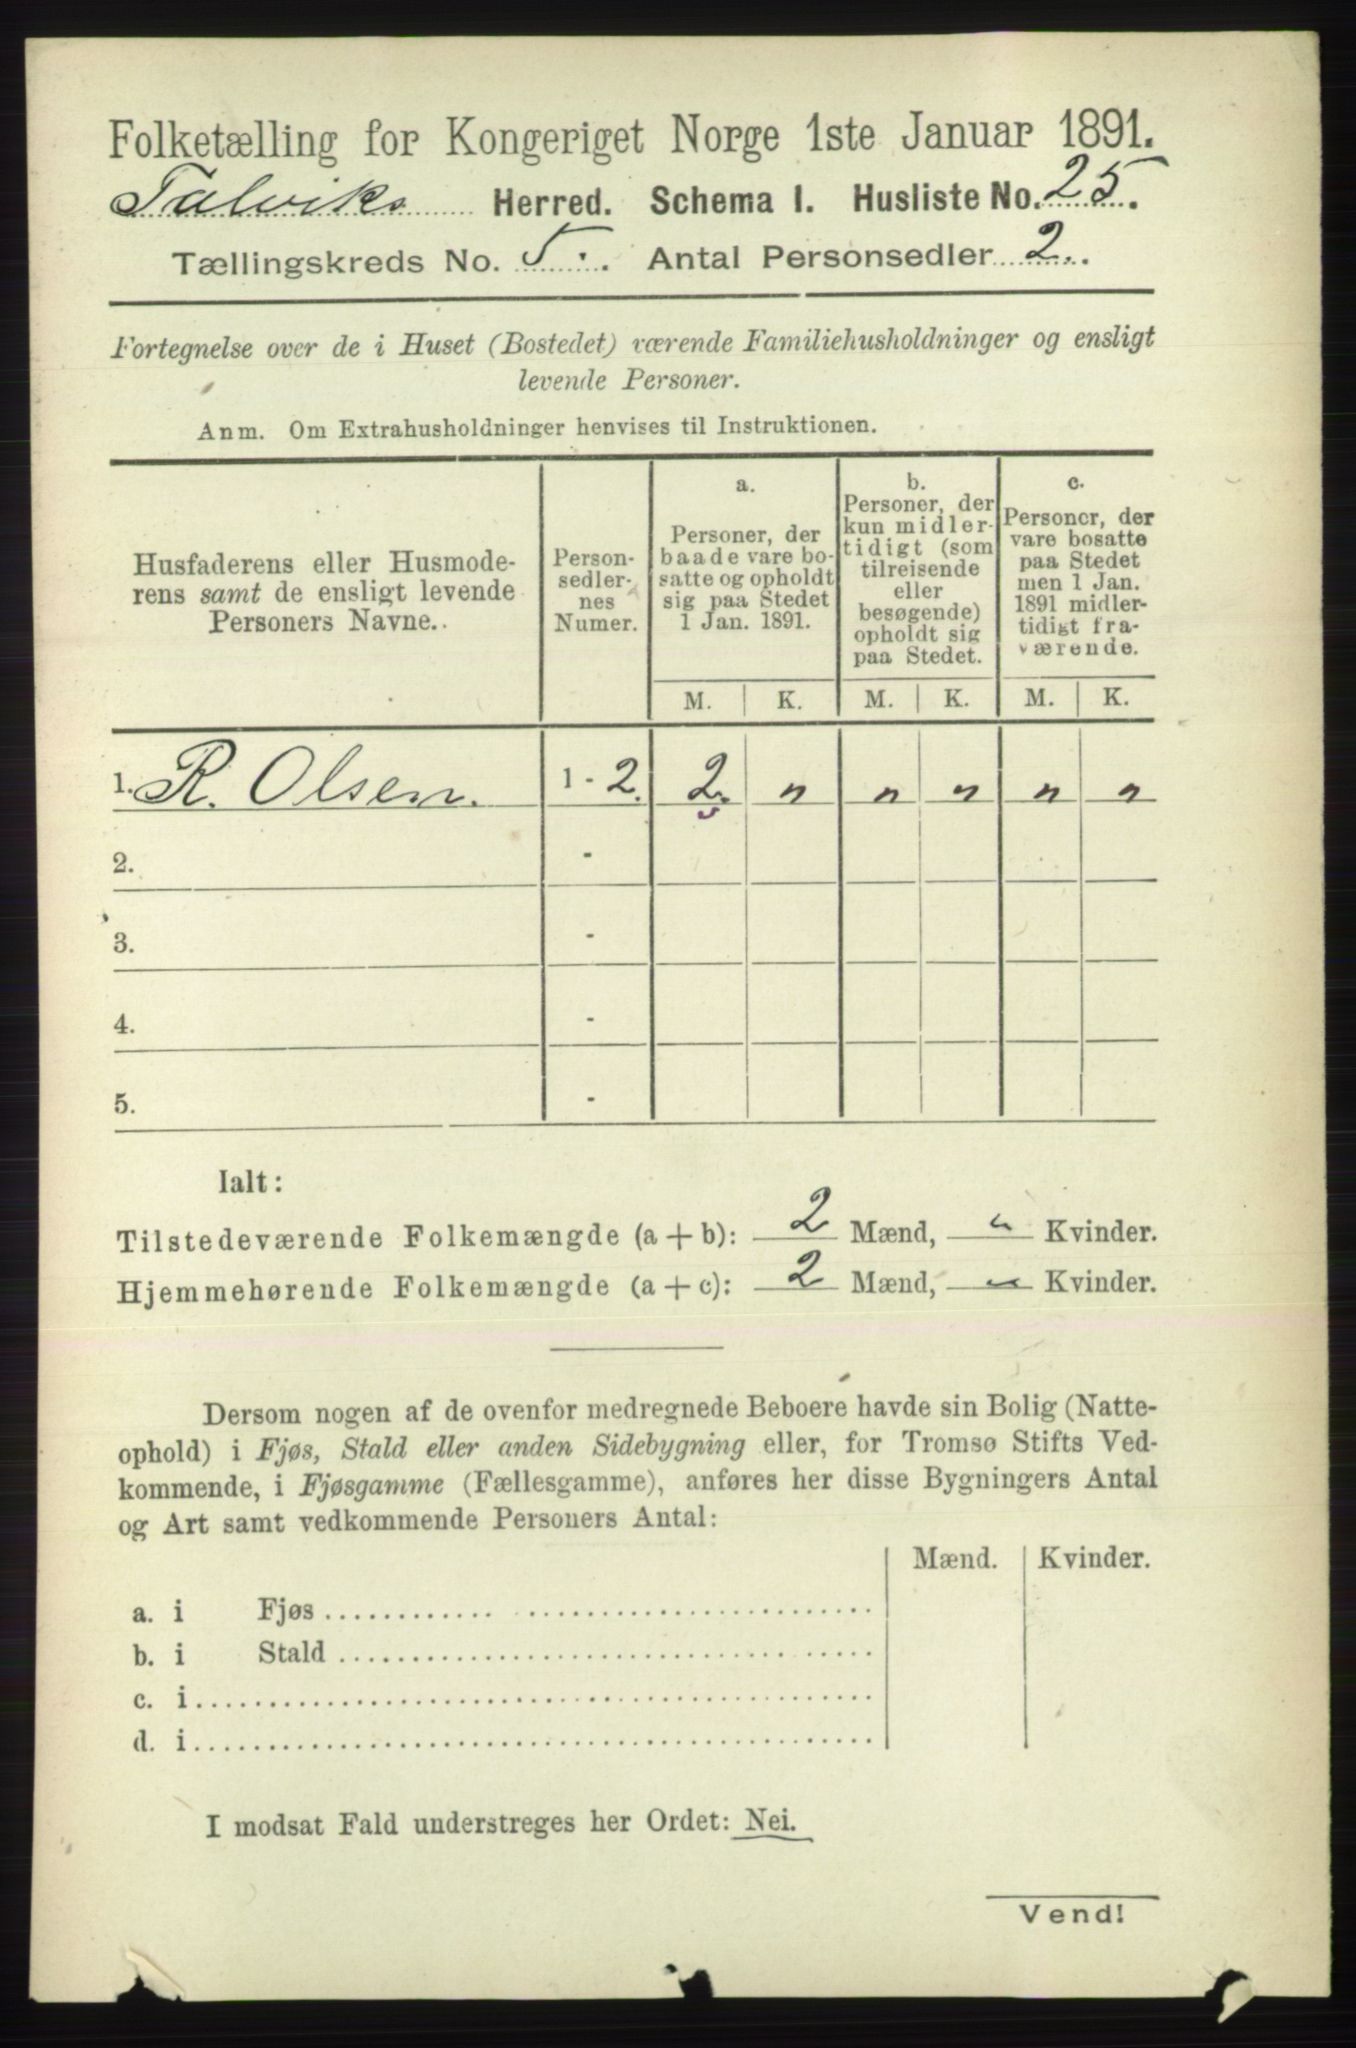 Folketælling for Kongeriget Norge 1ste Januar 1891.
Talviks Herred. Schema I. Husliste No. 25.
Tællingskreds No. 5. Antal Personsedler 2.
Fortegnelse over de i Huset (Bostedet) værende Familiehusholdninger og ensligt
levende Personer.
Anm. Om Extrahusholdninger henvises til Instruktionen.
Husfaderens eller Husmode-
rens samt de ensligt levende
Personers Navne.
Person-
sedler-
nes
Numer.
a.
Personer, der
baade vare bo-
satte og opholdt
sig paa Stedet
1 Jan. 1891.
b.
Personer, der
kun midler-
tidigt (som
tilreisende
eller
besøgende)
opholdt sig
paa Stedet.
c.
Personer, der
vare bosatte
paa Stedet
men 1 Jan.
1891 midler-
tidigt fra-
værende.
M. K. M. K. M. K.
1. R. Olsen. 1 - 2. 2. " " " " "
2. -
3. -
4. -
5. -
Ialt:
Tilstedeværende Folkemængde (a + b): 2 Mænd, " Kvinder.
Hjemmehørende Folkemængde (a + c): 2 Mænd, " Kvinder.
Dersom nogen af de ovenfor medregnede Beboere havde sin Bolig (Natte-
ophold) i Fjøs, Stald eller anden Sidebygning eller, for Tromsø Stifts Ved-
kommende, i Fjøsgamme (Fællesgamme), anføres her disse Bygningers Antal
og Art samt vedkommende Personers Antal:
Mænd. Kvinder.
a. i Fjøs
b. i Stald
c. i
d. i
I modsat Fald understreges her Ordet: Nei.
Vend!